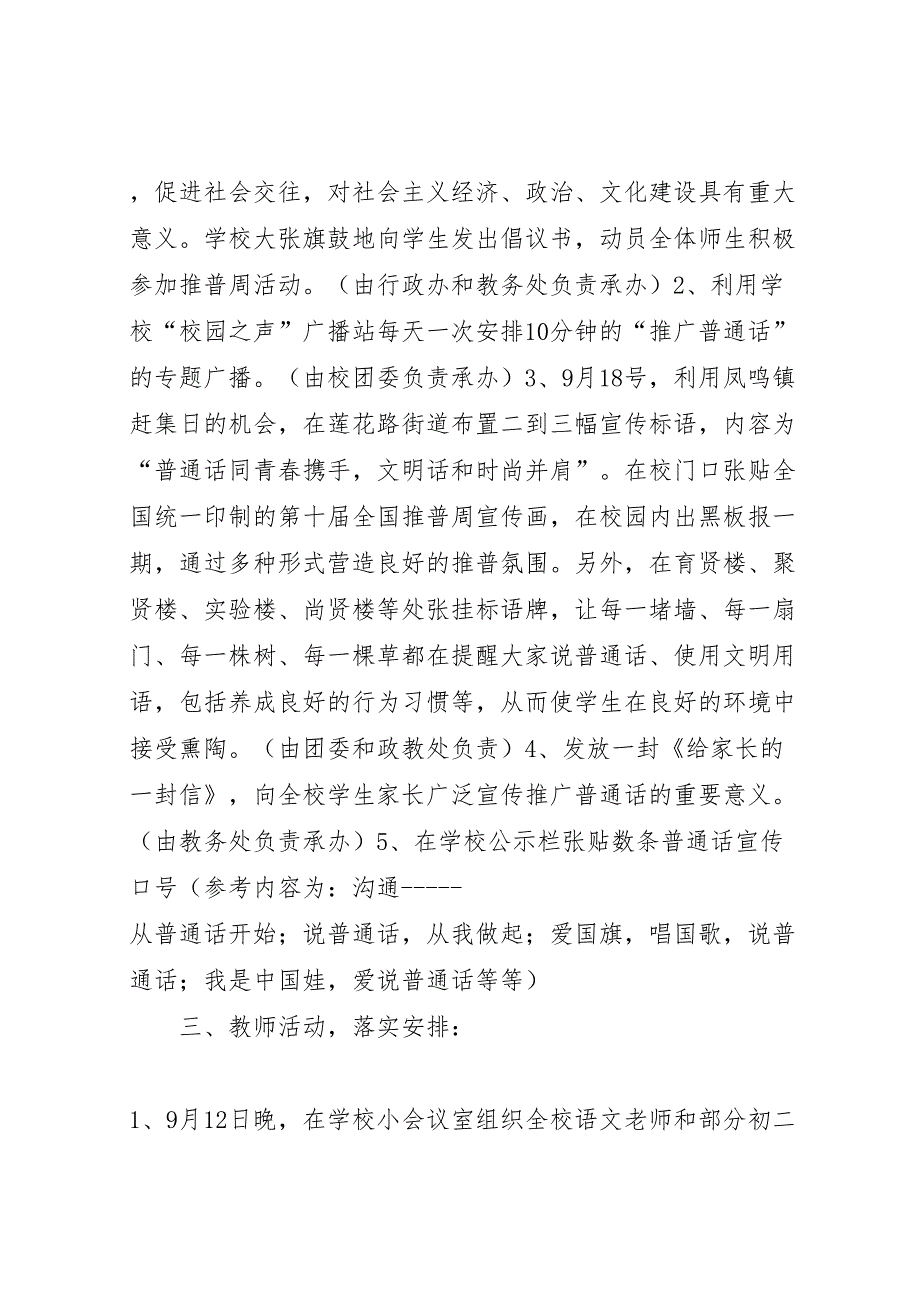 ，促进社会交往，对社会主义经济、政治、文化建设具有重大
意义。学校大张旗鼓地向学生发出倡议书，动员全体师生积极
参加推普周活动。（由行政办和教务处负责承办）2、利用学
校“校园之声”广播站每天一次安排10分钟的“推广普通话”
的专题广播。（由校团委负责承办）3、9月18号，利用凤鸣镇
赶集日的机会，在莲花路街道布置二到三幅宣传标语，内容为
“普通话同青春携手，文明话和时尚并肩”。在校门口张贴全
国统一印制的第十届全国推普周宣传画，在校园内出黑板报一
期，通过多种形式营造良好的推普氛围。另外，在育贤楼、聚
贤楼、实验楼、尚贤楼等处张挂标语牌，让每一堵墙、每一扇
门、每一株树、每一棵草都在提醒大家说普通话、使用文明用
语，包括养成良好的行为习惯等，从而使学生在良好的环境中
接受熏陶。（由团委和政教处负责）4、发放一封《给家长的
一封信》，向全校学生家长广泛宣传推广普通话的重要意义。
（由教务处负责承办）5、在学校公示栏张贴数条普通话宣传
口号（参考内容为：沟通-----
从普通话开始；说普通话，从我做起；爱国旗，唱国歌，说普
通话；我是中国娃，爱说普通话等等）
三、教师活动，落实安排：
1、9月12日晚，在学校小会议室组织全校语文老师和部分初二